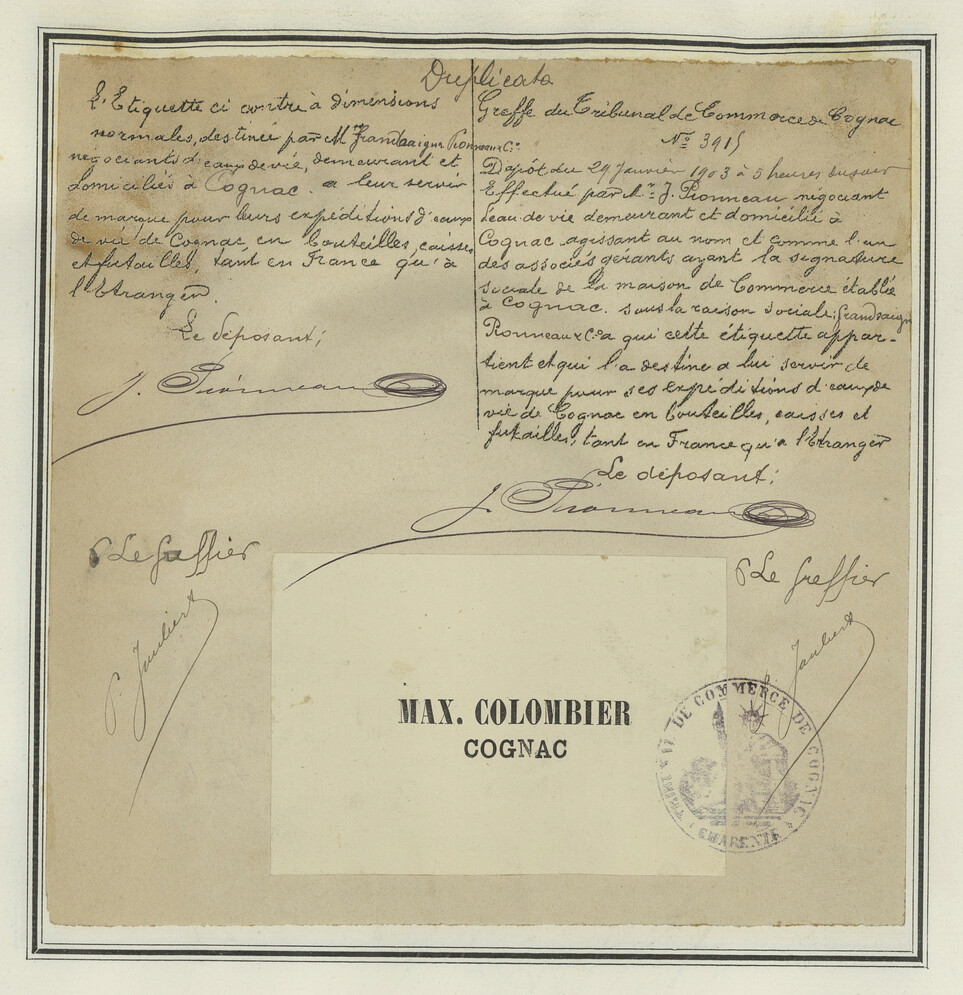 Duplicata
L'Etiquette ci contre à dimensions
normales, destinée par MM Grandsaigne Pionneau & Cie
négociants d'eaux de vie, demeurant et
domiciliés à Cognac. a leur servir
de marque pour leurs expéditions d'eaux
de vie de Cognac, en bouteilles, caisses
et futailles, tant en France qu'à
l'étranger.
Le déposant;
J. Pionneau
P Le Greffier
P. Jaubert
Greffe du Tribunal de Commerce de Cognac
No 3915
Dépôt du 29 Janvier 1903 à 5 heures du soir
Effectué par Mr J. Pionneau négociant
d'eau de vie demeurant et domicilié à
Cognac agissant au nom et comme l'un
des associés gérants ayant la signature
sociale de la maison de Commerce établie
à Cognac. sous la raison sociale; Grandsaigne
Pionneau & Cie a qui cette étiquette appar-
tient et qui l'a destine a lui servir de
marque pour ses expéditions d'eaux de
vie de Cognac en bouteilles, caisses et
futailles, tant en France qu'a l'étranger
Le déposant;
J. Pionneau
P Le Greffier
P. Jaubert
MAX. COLOMBIER
COGNAC
TRIBUNAL DE COMMERCE DE COGNAC
CHARENTE